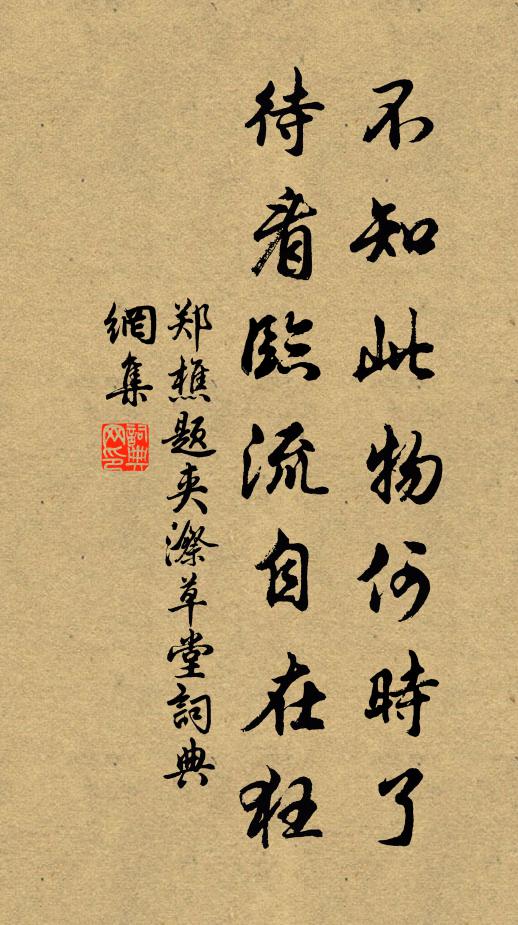 不知此物何時了
待看臨流自在狂
郑樵題夹漈草堂詞典
網集
詞典
网印